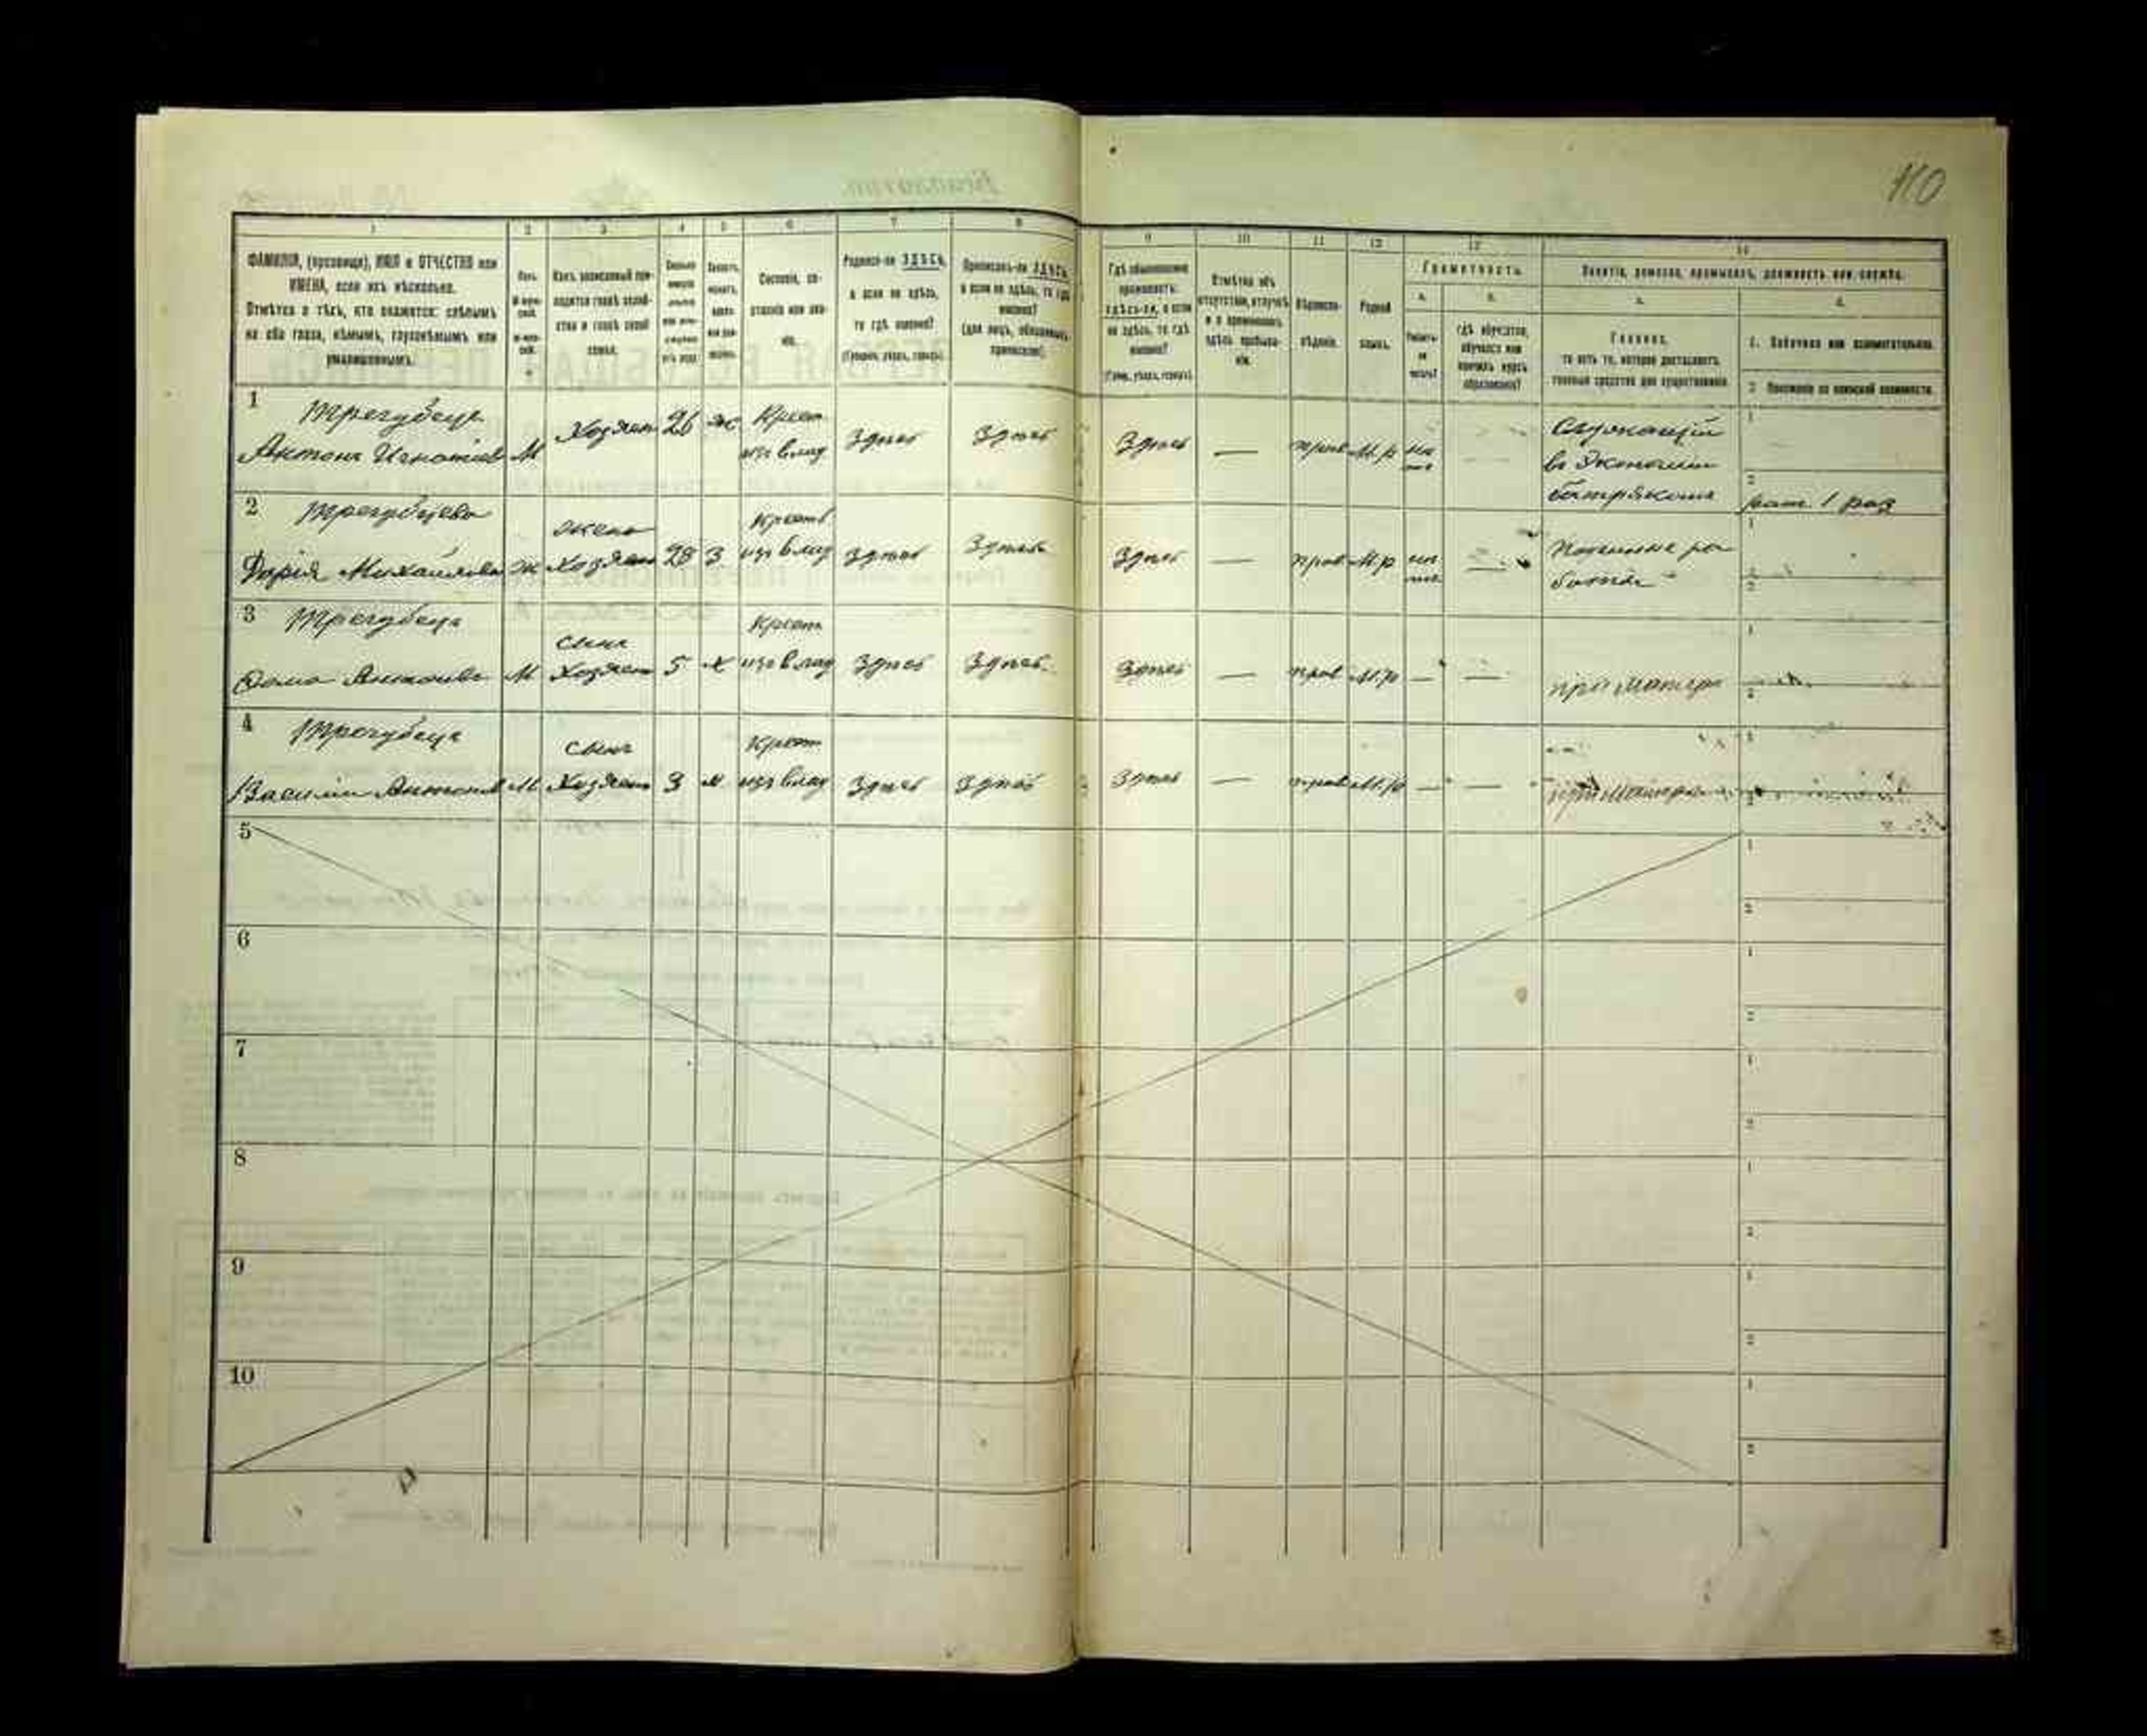 110
1 2 3 4 5 6 7 8 9 10 11 12 13 14
ФАМИЛІЯ, (прозвище), ИМЯ и ОТЧЕСТВО или
ИМЕНА, если ихъ нѣсколько.
Отмѣтка о тѣхъ, кто окажется: слѣпымъ
на оба глаза, нѣмымъ, глухонѣмымъ или
умалишеннымъ.
Полъ.
Какъ записанный при-
ходится главѣ хозяй-
ства и главѣ своей
семьи.
Сословіе, со-
стояніе или зва-
ніе.
Родился-ли ЗДѢСЬ,
а если не здѣсь,
то гдѣ именно?
(Губернія, уѣздъ, городъ).
Приписанъ-ли ЗДѢСЬ,
а если не здѣсь, то гдѣ
именно?
(для лицъ, обязанныхъ
припискою).
Гдѣ обыкновенно
проживаетъ:
здѣсь-ли, а если
не здѣсь, то гдѣ
именно?
(Губ., уѣздъ, городъ).
Отмѣтка объ
отсутствіи, отлучкѣ
и о временномъ
здѣсь пребыва-
ніи.
Вѣроиспо-
вѣданіе.
Родной
языкъ.
Грамотность.
а. б.
Умѣетъ-
ли
читать?
гдѣ обучается,
обучался или
кончилъ курсъ
образованія?
Занятіе, ремесло, промыселъ, должность или служба.
а.
Главное,
то есть то, которое доставляетъ
главныя средства для существованія.
1. Побочное или вспомогательное.
2. Положеніе по воинской повинности.
1 Трегубецъ
Антонъ Игнатіевъ М Хозяинъ 26 Ж Крест изъ влад Здѣсь Здѣсь Здѣсь — прав М.р
Служащій
въ Экономіи
батракомъ
рат. 1 раз
2 Трегубцева
Дарія Михайлова Ж жена Хозяина 28 З Крест изъ влад Здѣсь Здѣсь Здѣсь — прав М.р —
3 Трегубецъ
Ѳома Антоновъ М сынъ Хозяина 5 Х Крест изъ влад Здѣсь Здѣсь Здѣсь — прав М.р — — при матери
4 Трегубецъ
Василій Антоновъ М сынъ Хозяина 3 Х Крест изъ влад Здѣсь Здѣсь Здѣсь — прав М.р — — при матери
5
6
7
8
9
10